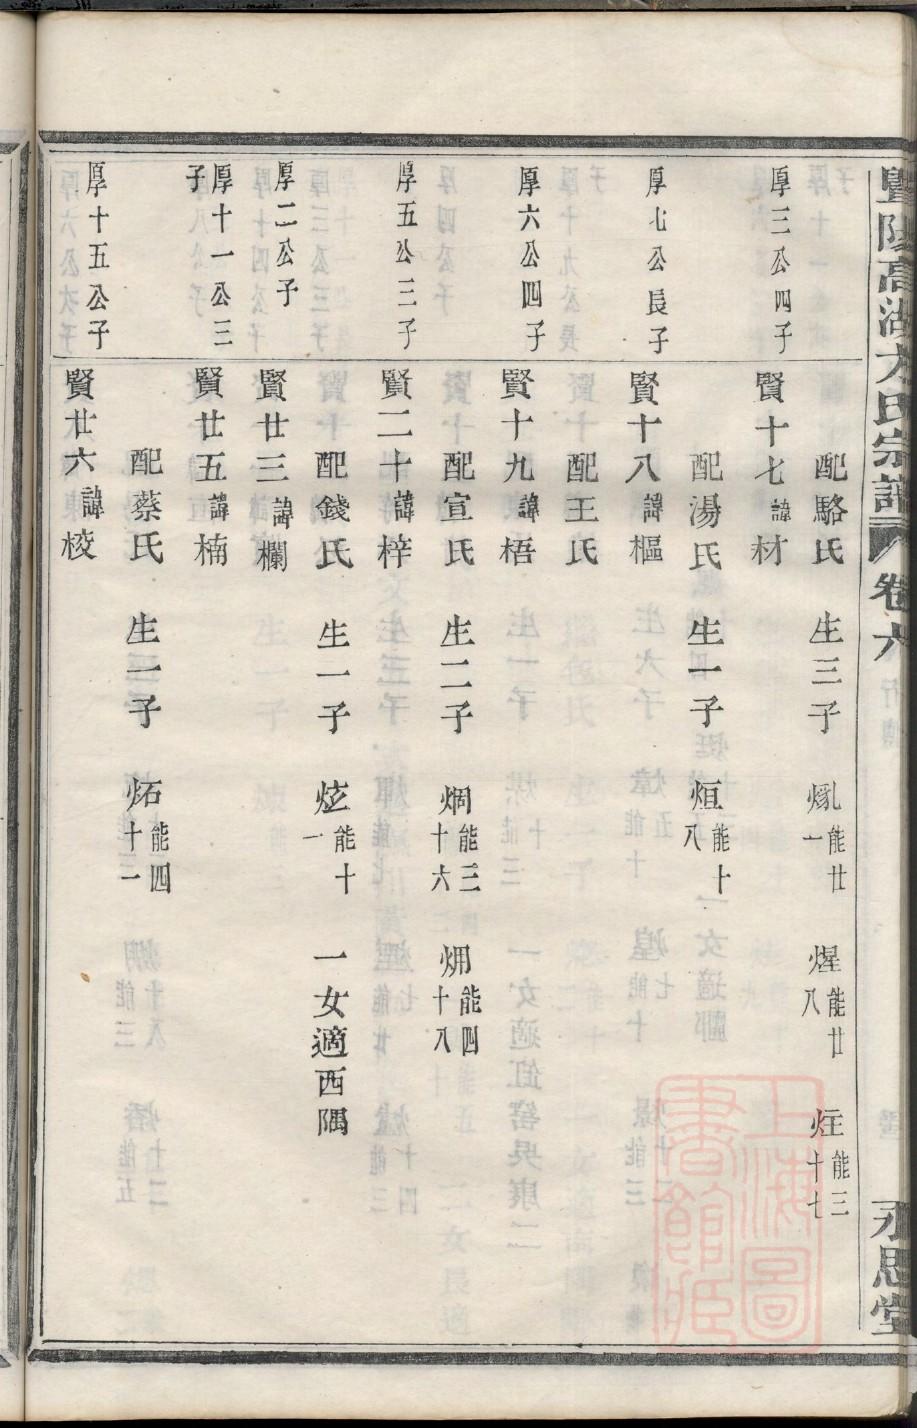 暨陽高湖方氏宗譜 卷六 永思堂
配駱氏 生三子 能廿一 煋能廿八 炷能三十七
厚三公四子 賢十七諱材
配湯氏 生一子 烜能十八
厚七公長子 賢十八諱樞
配王氏
厚六公四子 賢十九諱梧
配宣氏 生二子 烱能三十六 能四十八
厚五公三子 賢二十諱梓
配錢氏 生一子 炫能十一 一女適西隅
厚二公子 賢廿三諱欄
厚十一公三子 賢廿五諱楠
配蔡氏 生一子 炻能四十一
厚十五公子 賢廿六諱棱
上海圖書館藏